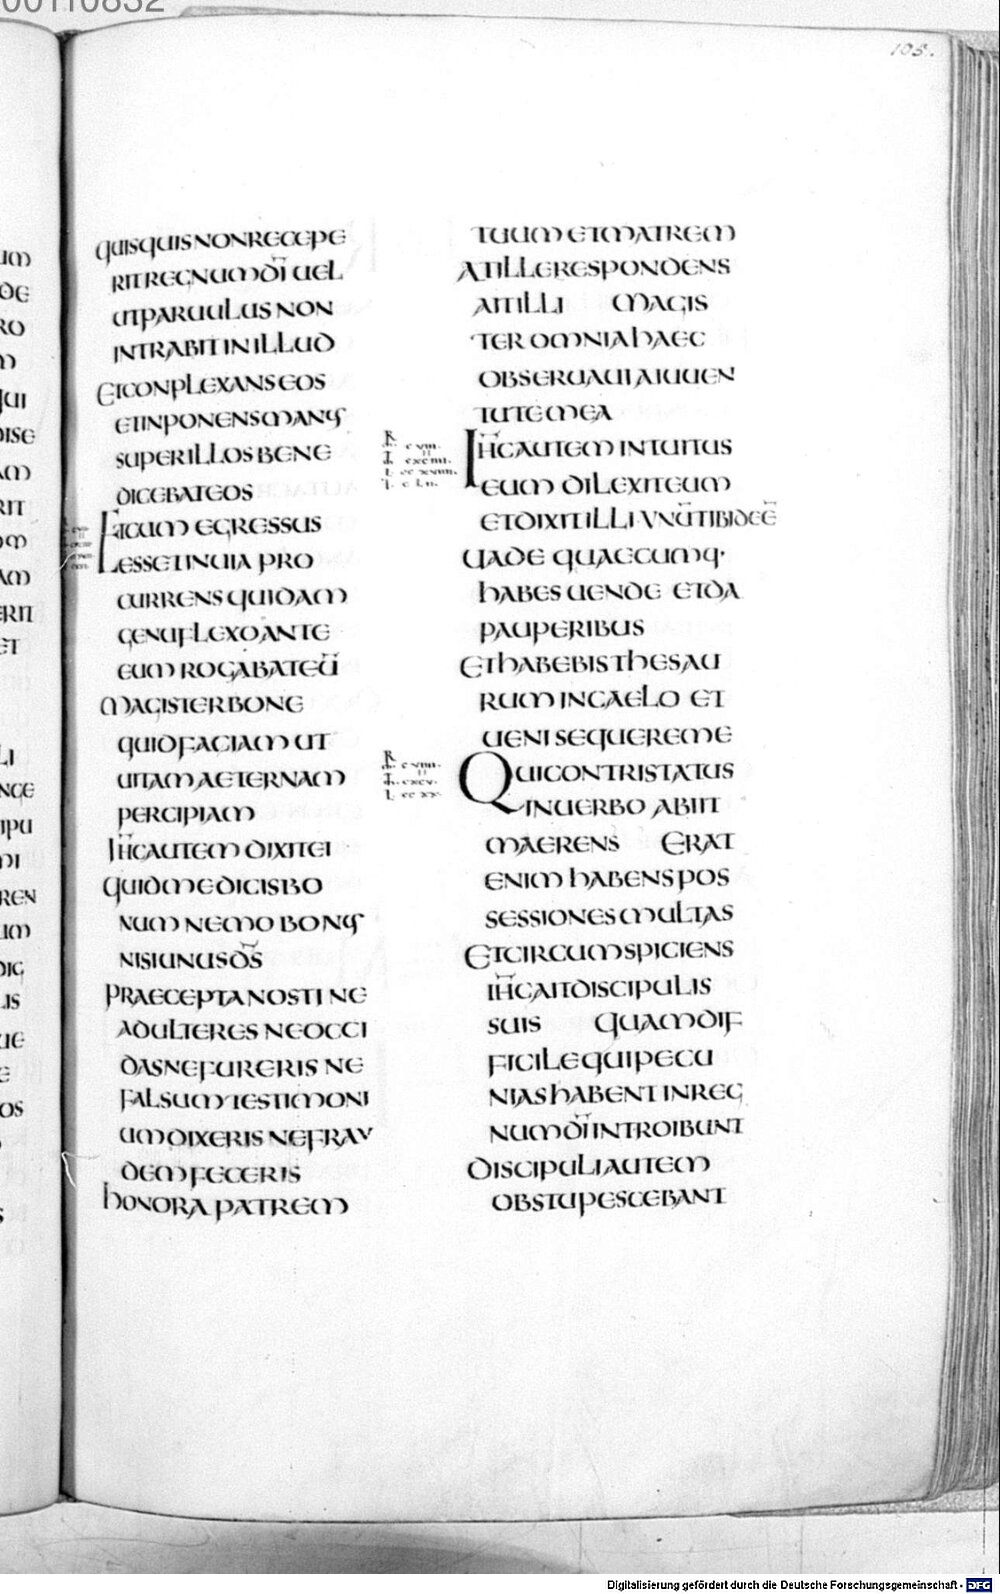 00110832
105.
QUISQUIS NON RECEPE
RIT REGNUM DI UEL
UT PARUULUS NON
INTRABIT IN ILLUD
ET CONPLEXANS EOS
ET INPONENS MANUS
SUPER ILLOS BENE
DICEBAT EOS
ET CUM EGRESSUS
ESSET IN UIA PRO
CURRENS QUIDAM
GENU FLEXO ANTE
EUM ROGABAT EŪ
MAGISTER BONE
QUID FACIAM UT
UITAM AETERNAM
PERCIPIAM
IHC AUTEM DIXIT EI
QUID ME DICIS BO
NUM NEMO BONUS
NISI UNUS DS
PRAECEPTA NOSTI NE
ADULTERES NE OCCI
DAS NE FURERIS NE
FALSUM TESTIMONI
UM DIXERIS NE FRAV
DEM FECERIS
HONORA PATREM
TUUM ET MATREM
AT ILLE RESPONDENS
AIT ILLI MAGIS
TER OMNIA HAEC
OBSERUAUI A IUUEN
TUTE MEA
IHC AUTEM INTUITUS
EUM DILEXIT EUM
ET DIXIT ILLI VNŪ TIBI DEE
UADE QUAECUMQ·
HABES UENDE ET DA
PAUPERIBUS
ET HABEBIS THESAU
RUM IN CAELO ET
UENI SEQUERE ME
QUI CONTRISTATUS
IN UERBO ABIIT
MAERENS ERAT
ENIM HABENS POS
SESSIONES MULTAS
ET CIRCUMSPICIENS
IHC AIT DISCIPULIS
SUIS QUAM DIF
FICILE QUI PECU
NIAS HABENT IN REG
NUM DI INTROIBUNT
DISCIPULI AUTEM
OBSTUPESCEBANT
Digitalisierung gefördert durch die Deutsche Forschungsgemeinschaft - DFG